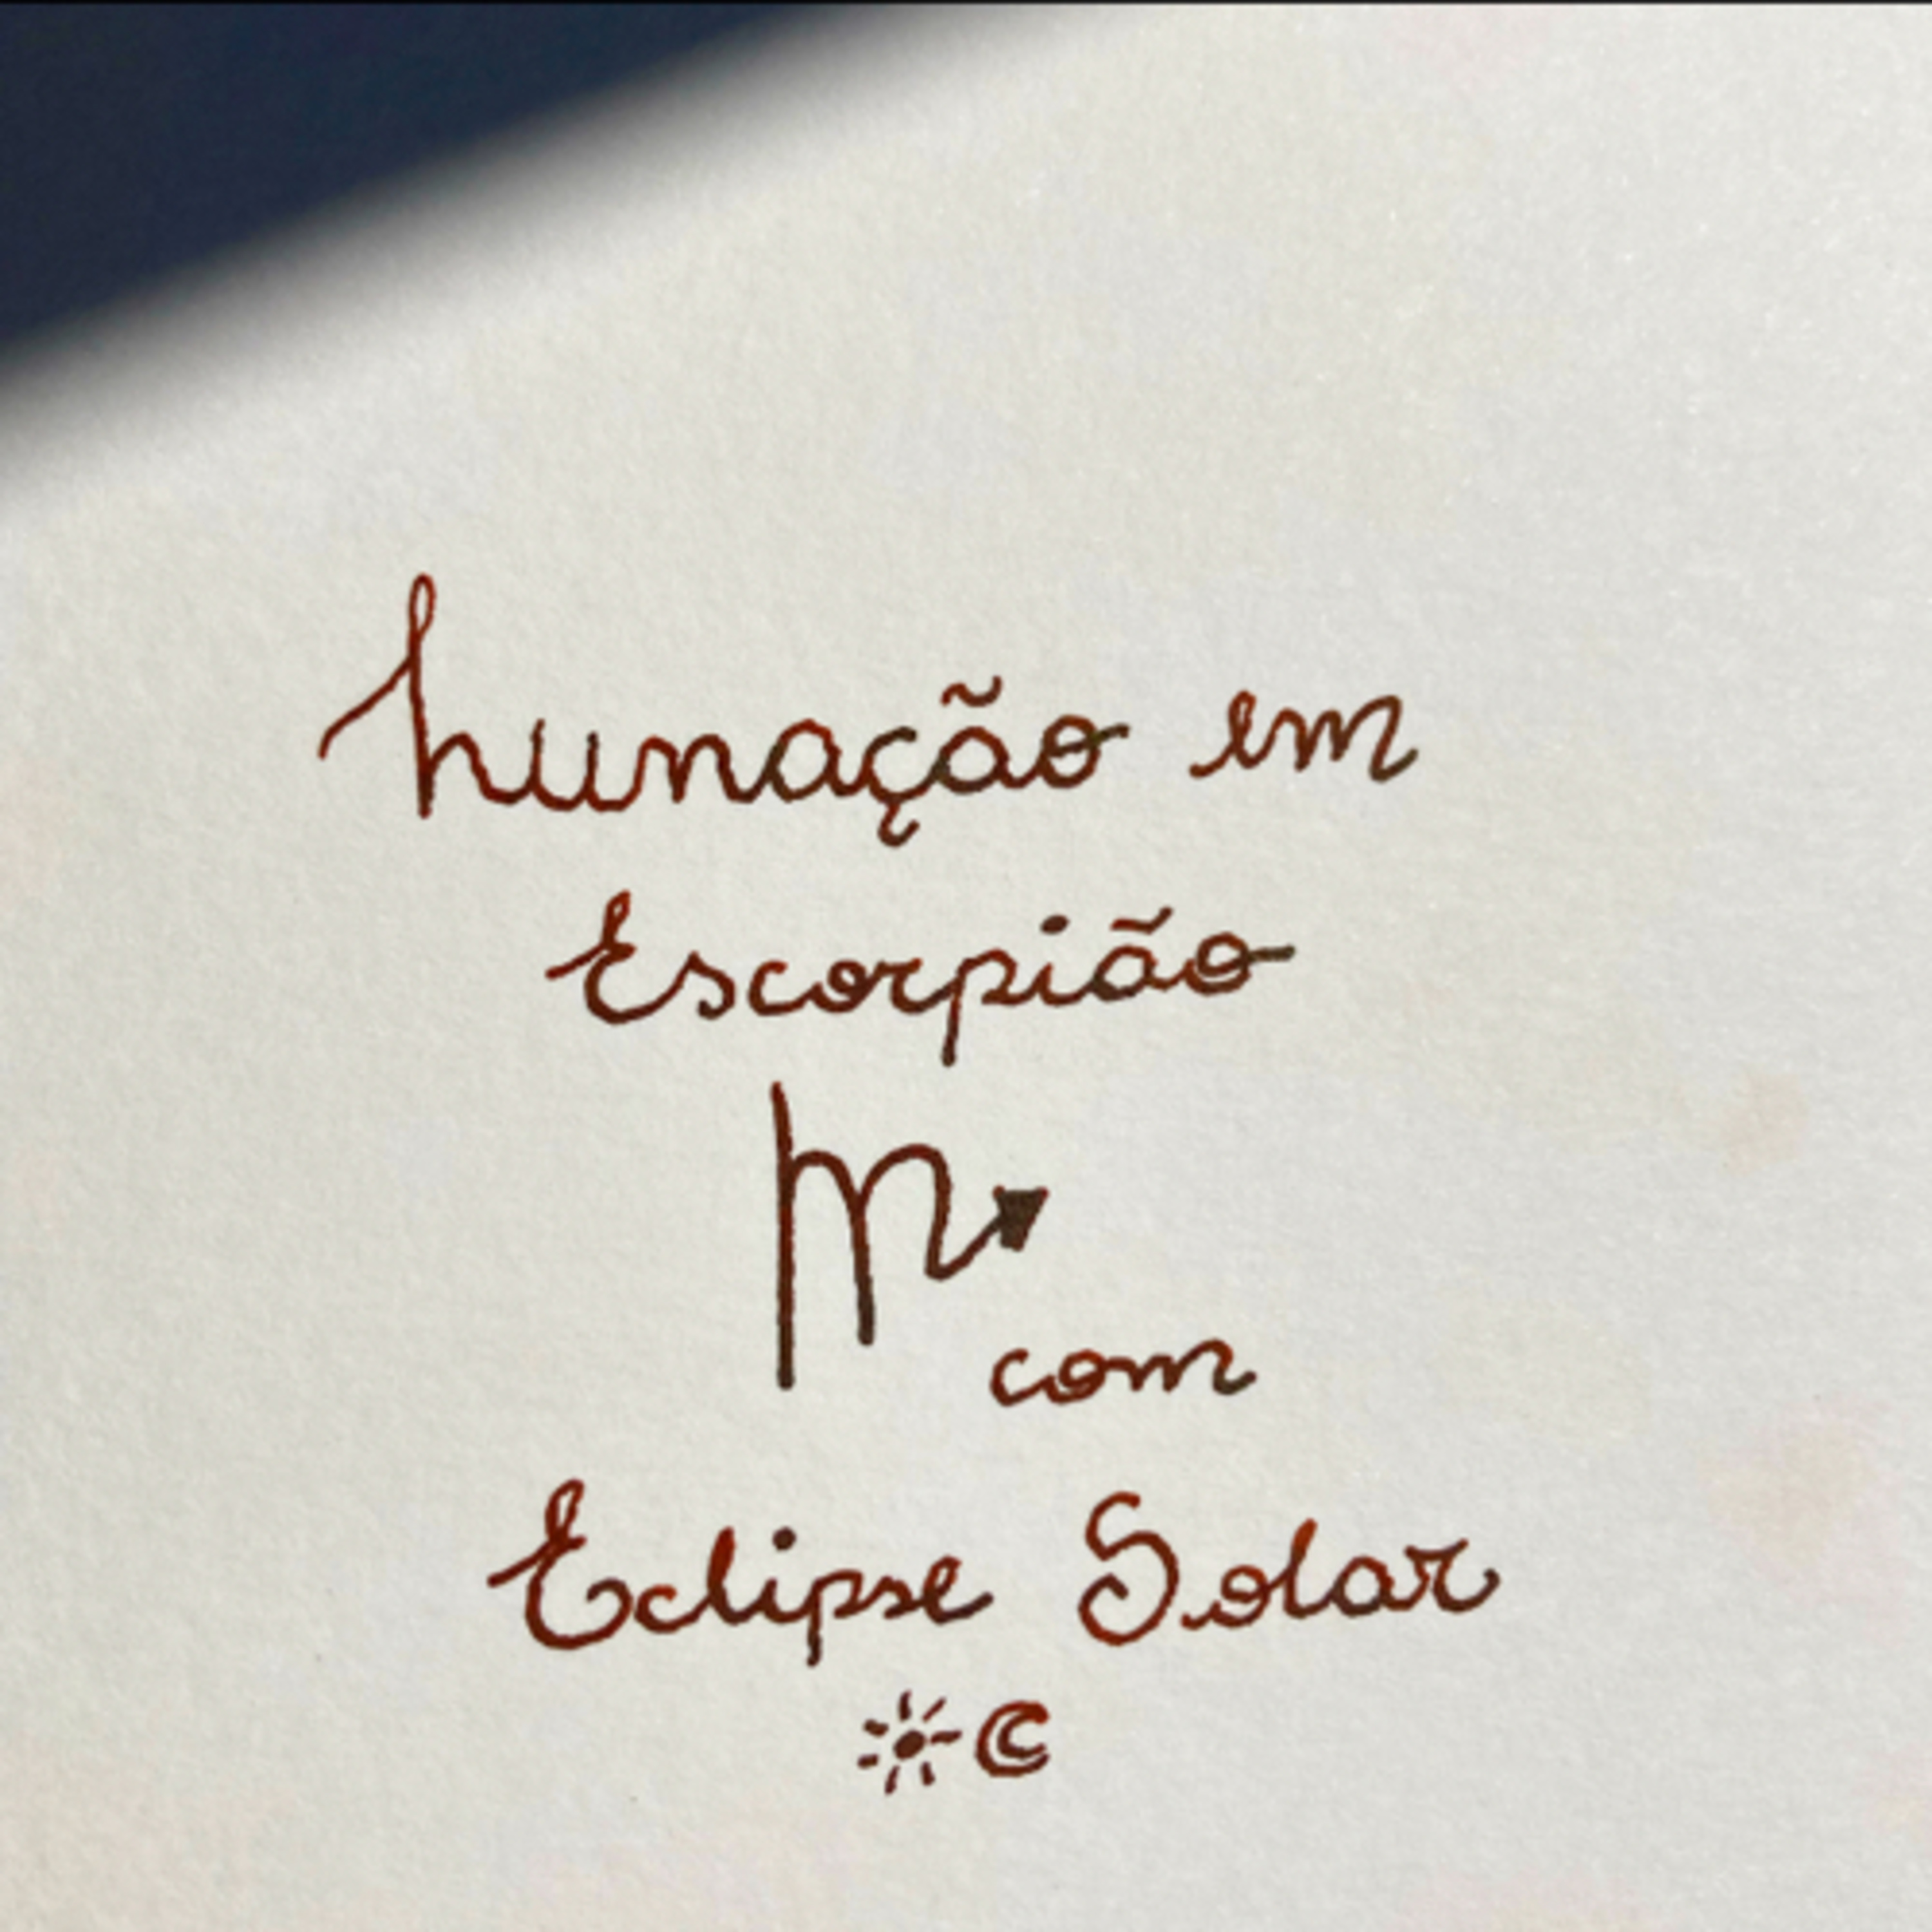 Lunação em
Escorpião
♏
com
Eclipse Solar
☀☾